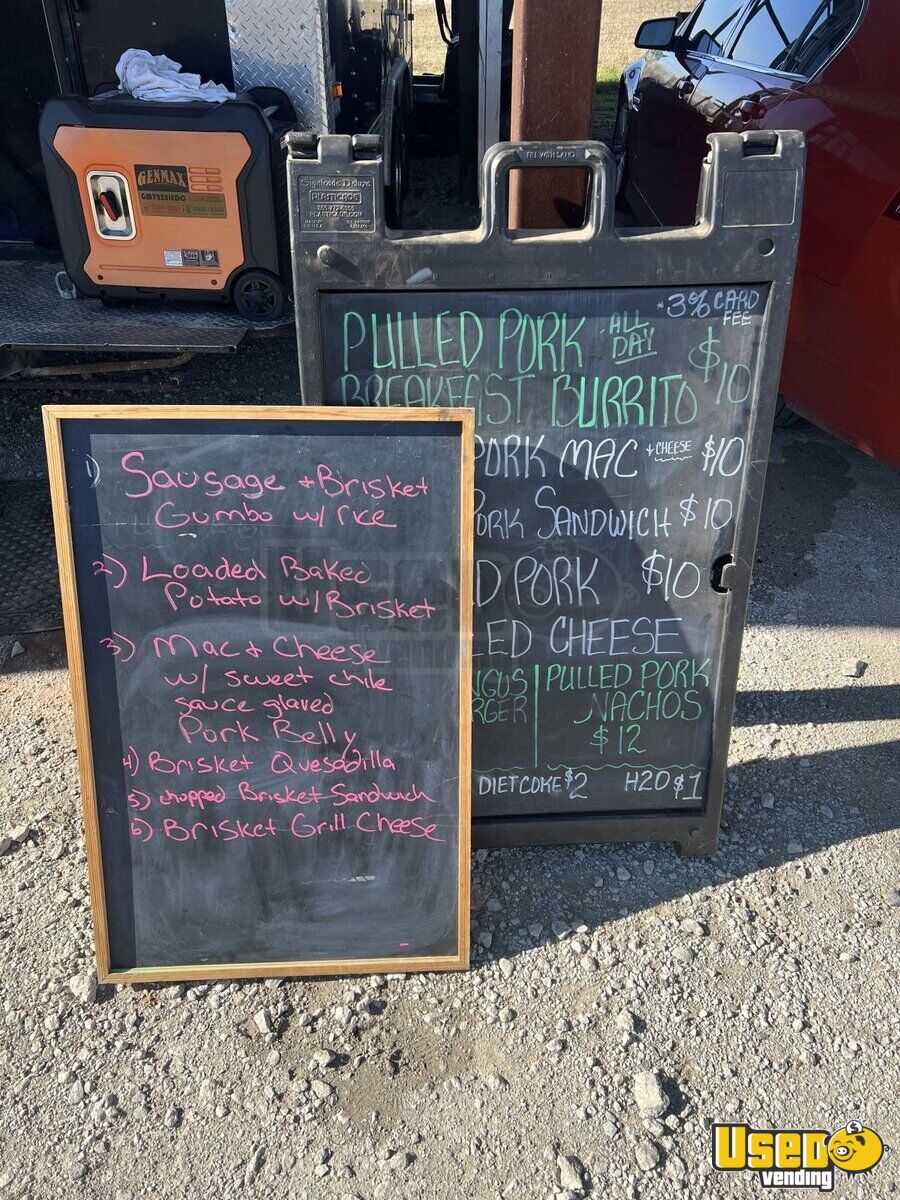 GENMAX
GM7250iEDC
FILL WITH SAND
Signicade Deluxe
PLASTICADE
PLASTICADE.COM
*3% CARD
FEE
PULLED PORK ALL
DAY
BREAKFAST BURRITO $10
PORK MAC + CHEESE $10
ORK SANDWICH $10
D PORK $10
ED CHEESE
NGUS PULLED PORK
RGER NACHOS
$12
DIET COKE $2 H2O $1
1) Sausage + Brisket
Gumbo w/ rice
2) Loaded Baked
Potato w/ Brisket
3) Mac + Cheese
w/ sweet chile
sauce glaved
Pork Belly
4) Brisket Quesadilla
5) chopped Brisket Sandwich
6) Brisket Grill Cheese
USED
vending